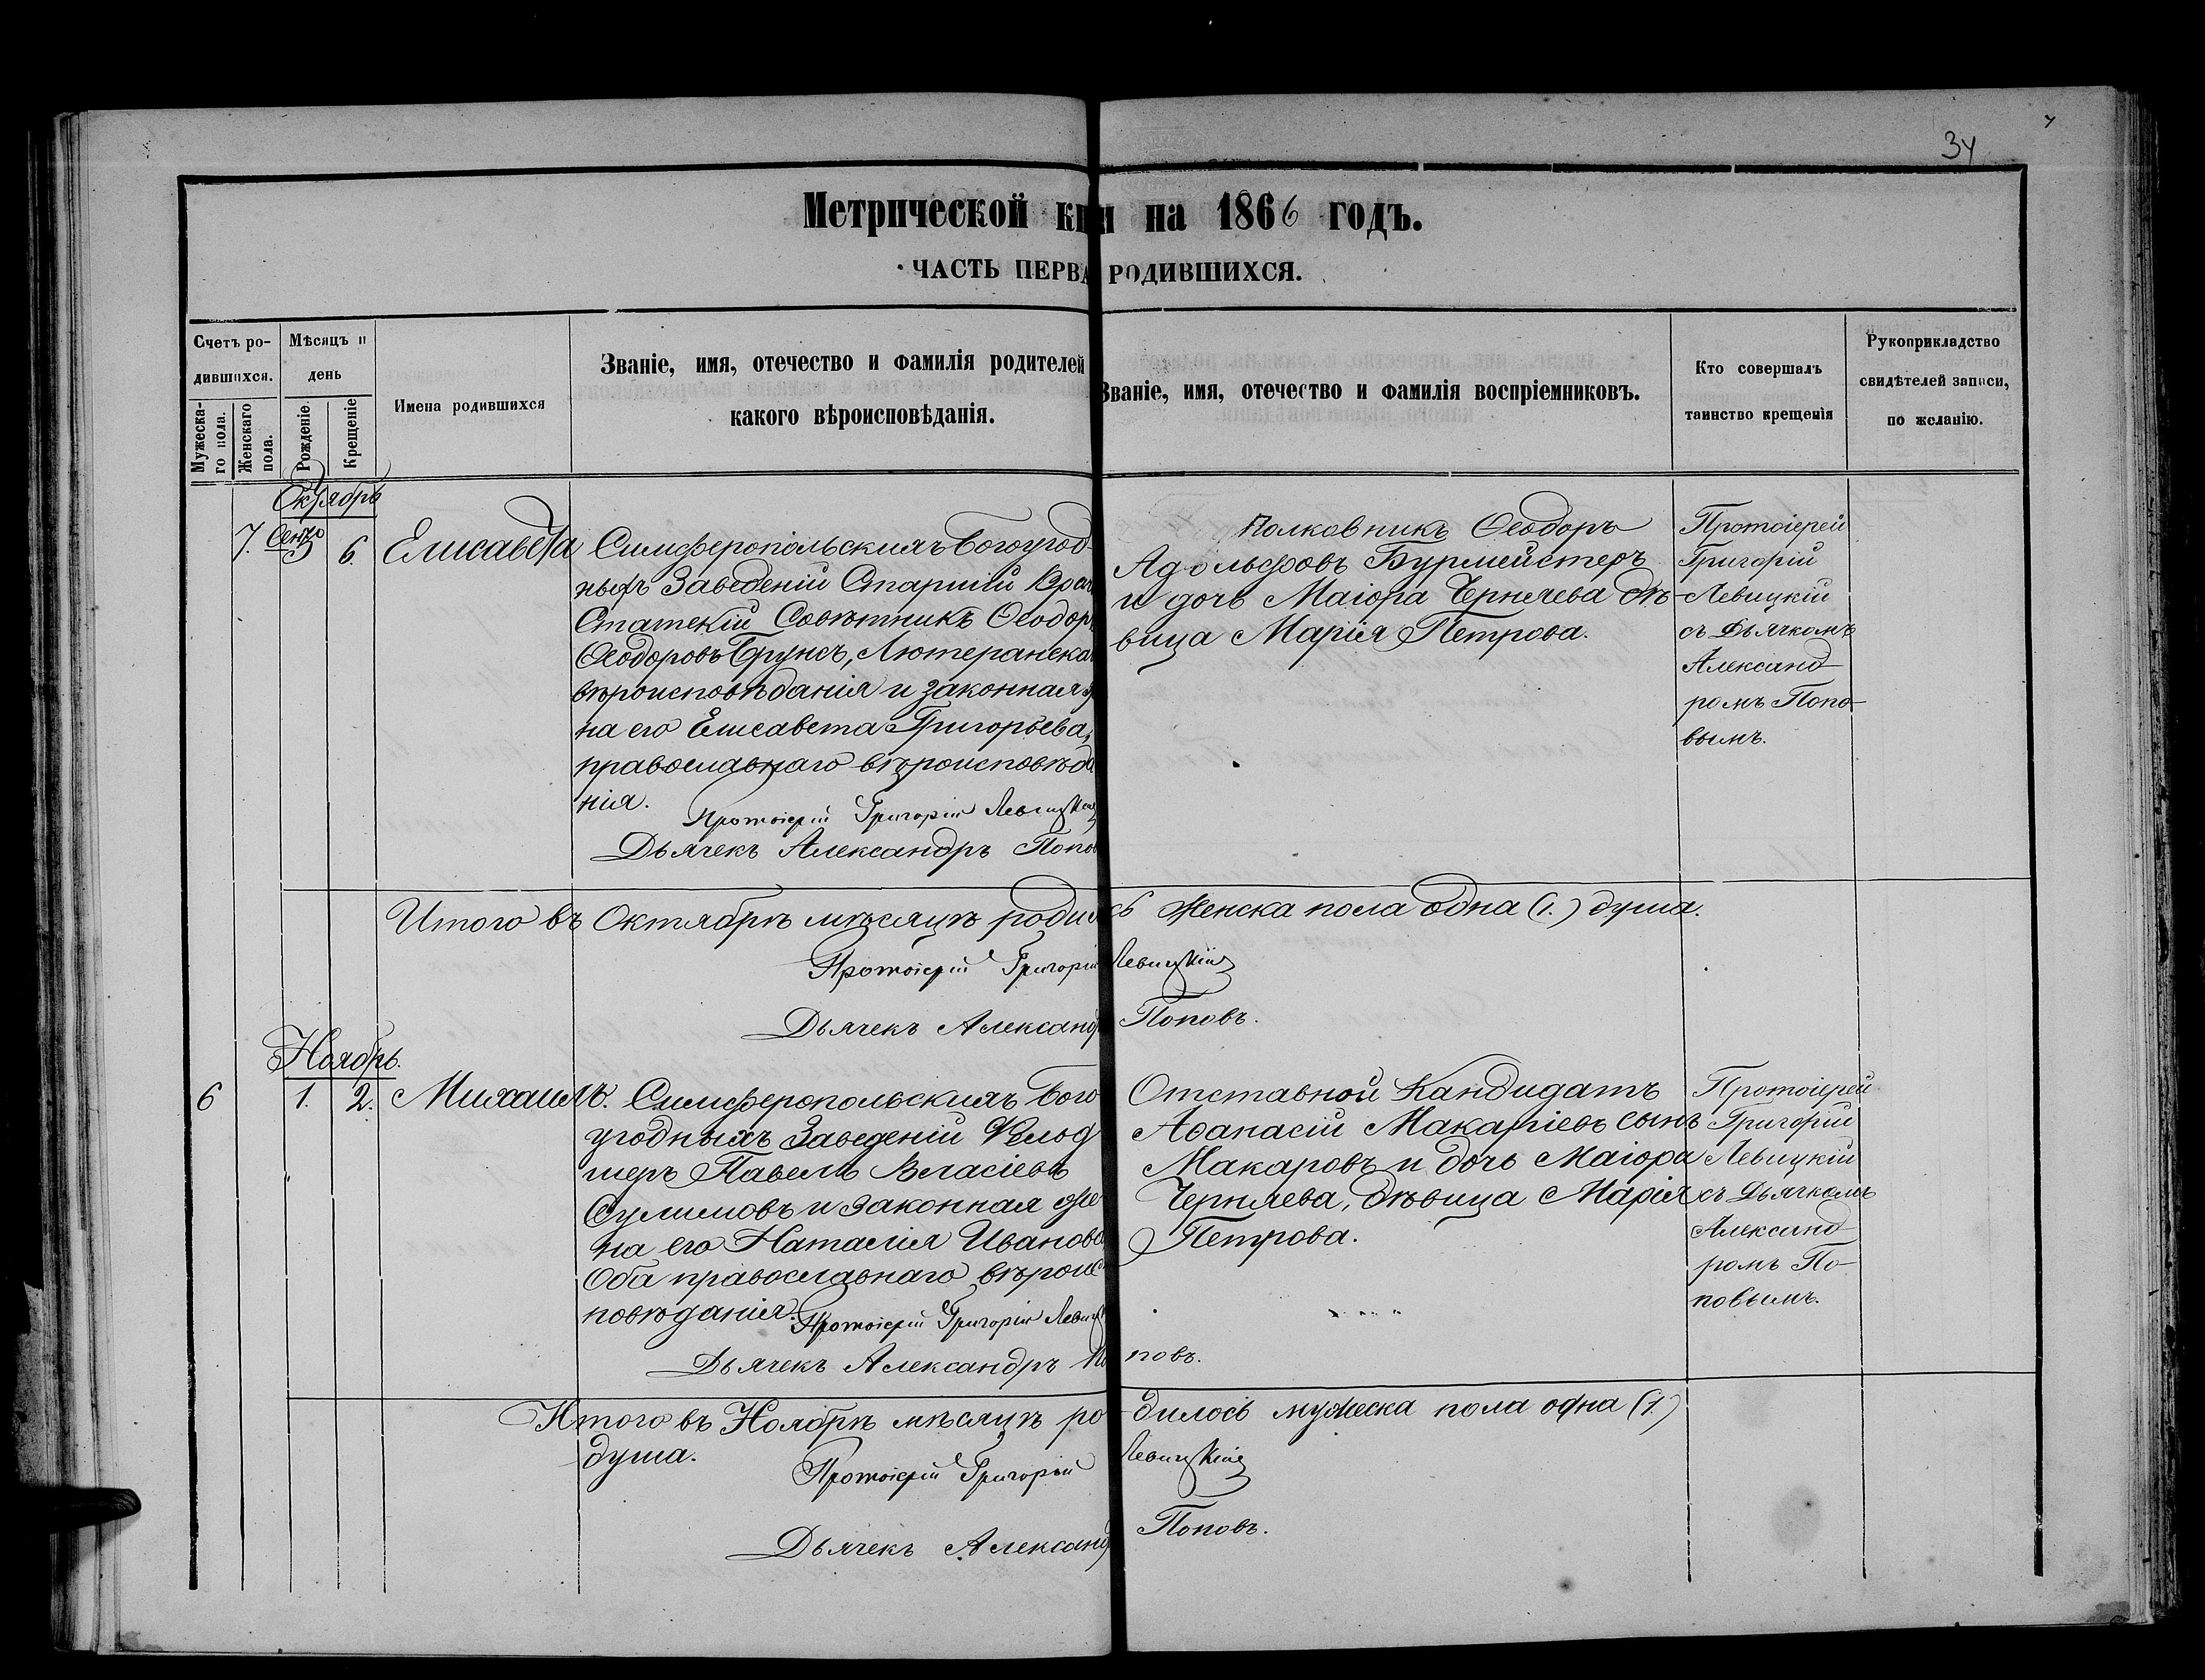 34
Метрической кн и на 1866 годъ.
ЧАСТЬ ПЕРВА РОДИВШИХСЯ.
Счетъ ро-
дившихся.
Мужеска-
го пола.
Женскаго
пола.
Мѣсяцъ и
день
Рожденіе.
Крещеніе
Имена родившихся
Званіе, имя, отечество и фамилія родителей
какого вѣроисповѣданія.
Званіе, имя, отечество и фамилія воспріемниковъ.
Кто совершалъ
таинство крещенія
Рукоприкладство
свидѣтелей записи,
по желанію.
Октябрь
7.
6.
Елисавета
Симферопольскихъ Богоугод-
ныхъ Заведеній Старшій Врач
Статскій Совѣтникъ Ѳеодоръ
Ѳеодоровъ Брунсъ, Лютеранска
вѣроисповѣданія и законная
на его Елисавета Григорьева,
православнаго вѣроисповѣда
нія.
Протоіерей Григорій Левицкій
Дьячекъ Александръ Попов
Полковникъ Ѳеодоръ
Адольфовъ Бурмейстеръ
и дочь Маіора Черняева дѣ-
вица Марія Петрова.
Протоіерей
Григорій
Левицкій
съ Дьячкомъ
Александ-
ромъ Попо-
вымъ.
Итого въ Октябрѣ мѣсяцѣ родилсь женска пола одна (1.) душа.
Протоіерей Григорій Левицкій
Дьячекъ Александ Поповъ.
Ноябрь.
6
1.
2.
Михаилъ.
Симферопольскихъ Бого
угодныхъ Заведеній Фельд
шеръ Павелъ Власіевъ
Сулимовъ и законная же
на его Наталія Иванова
Оба православнаго вѣроис
повѣданія.
Протоіерей Григорій Левиц
Дьячекъ Александръ По повъ.
Отставной Кандидатъ
Аѳанасій Макаріевъ сынъ
Макаровъ и дочь Маіора
Черняева, дѣвица Марія
Петрова.
Протоіерей
Григорій
Левицкій
съ Дьячкомъ
Александ-
ромъ По-
повымъ.
Итого въ Ноябрѣ мѣсяцѣ ро-дилось мужеска пола одна (1.)
душа.
Протоіерей Григорій Левицкій
Дьячекъ Александ Поповъ.